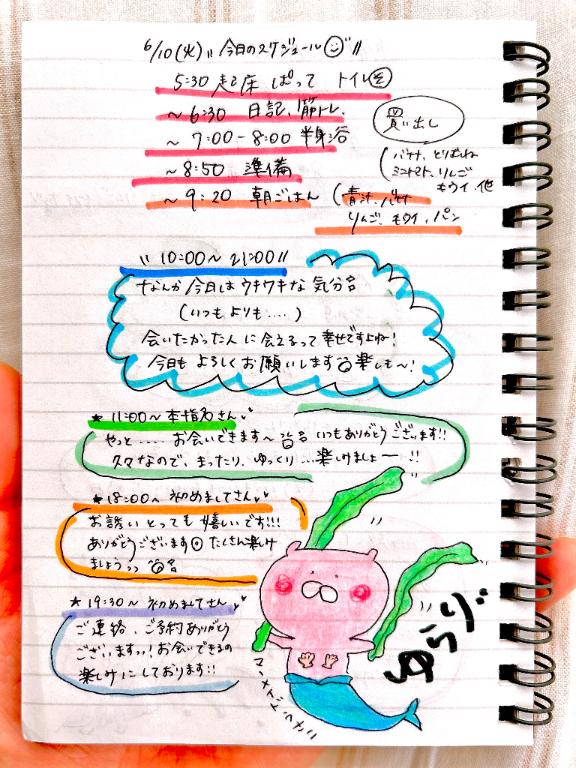 6/10(火) "今日のスケジュール"
5:30 起床 ぱって トイレ
~ 6:30 日記、筋トレ、
~ 7:00-8:00 半身浴
~ 8:50 準備
~ 9:20 朝ごはん (青汁、バナナ
りんご、キウイ、パン
買い出し
(バナナ、とりむね
ミニトマト、りんご
キウイ 他
"10:00~ 21:00"
なんか今日はウキウキな気分
(いつもよりも....)
会いたかった人に会えるって幸せですよね!
今日もよろしくお願いします 楽しも~!
★11:00~ 本指名さん
やっと..... お会いできます~ いつもありがとうございます!!
久々なので、まったり、ゆっくり...楽しみましょー!!
★18:00~ 初めましてさん
お誘いとっても嬉しいです!!!
ありがとうございます たくさん楽しみ
ましょうっっ
★19:30~ 初めましてさん
ご連絡、ご予約ありがとう
ございますっっ! お会いできるの
楽しみにしております!!
マーメイド
ゆうり